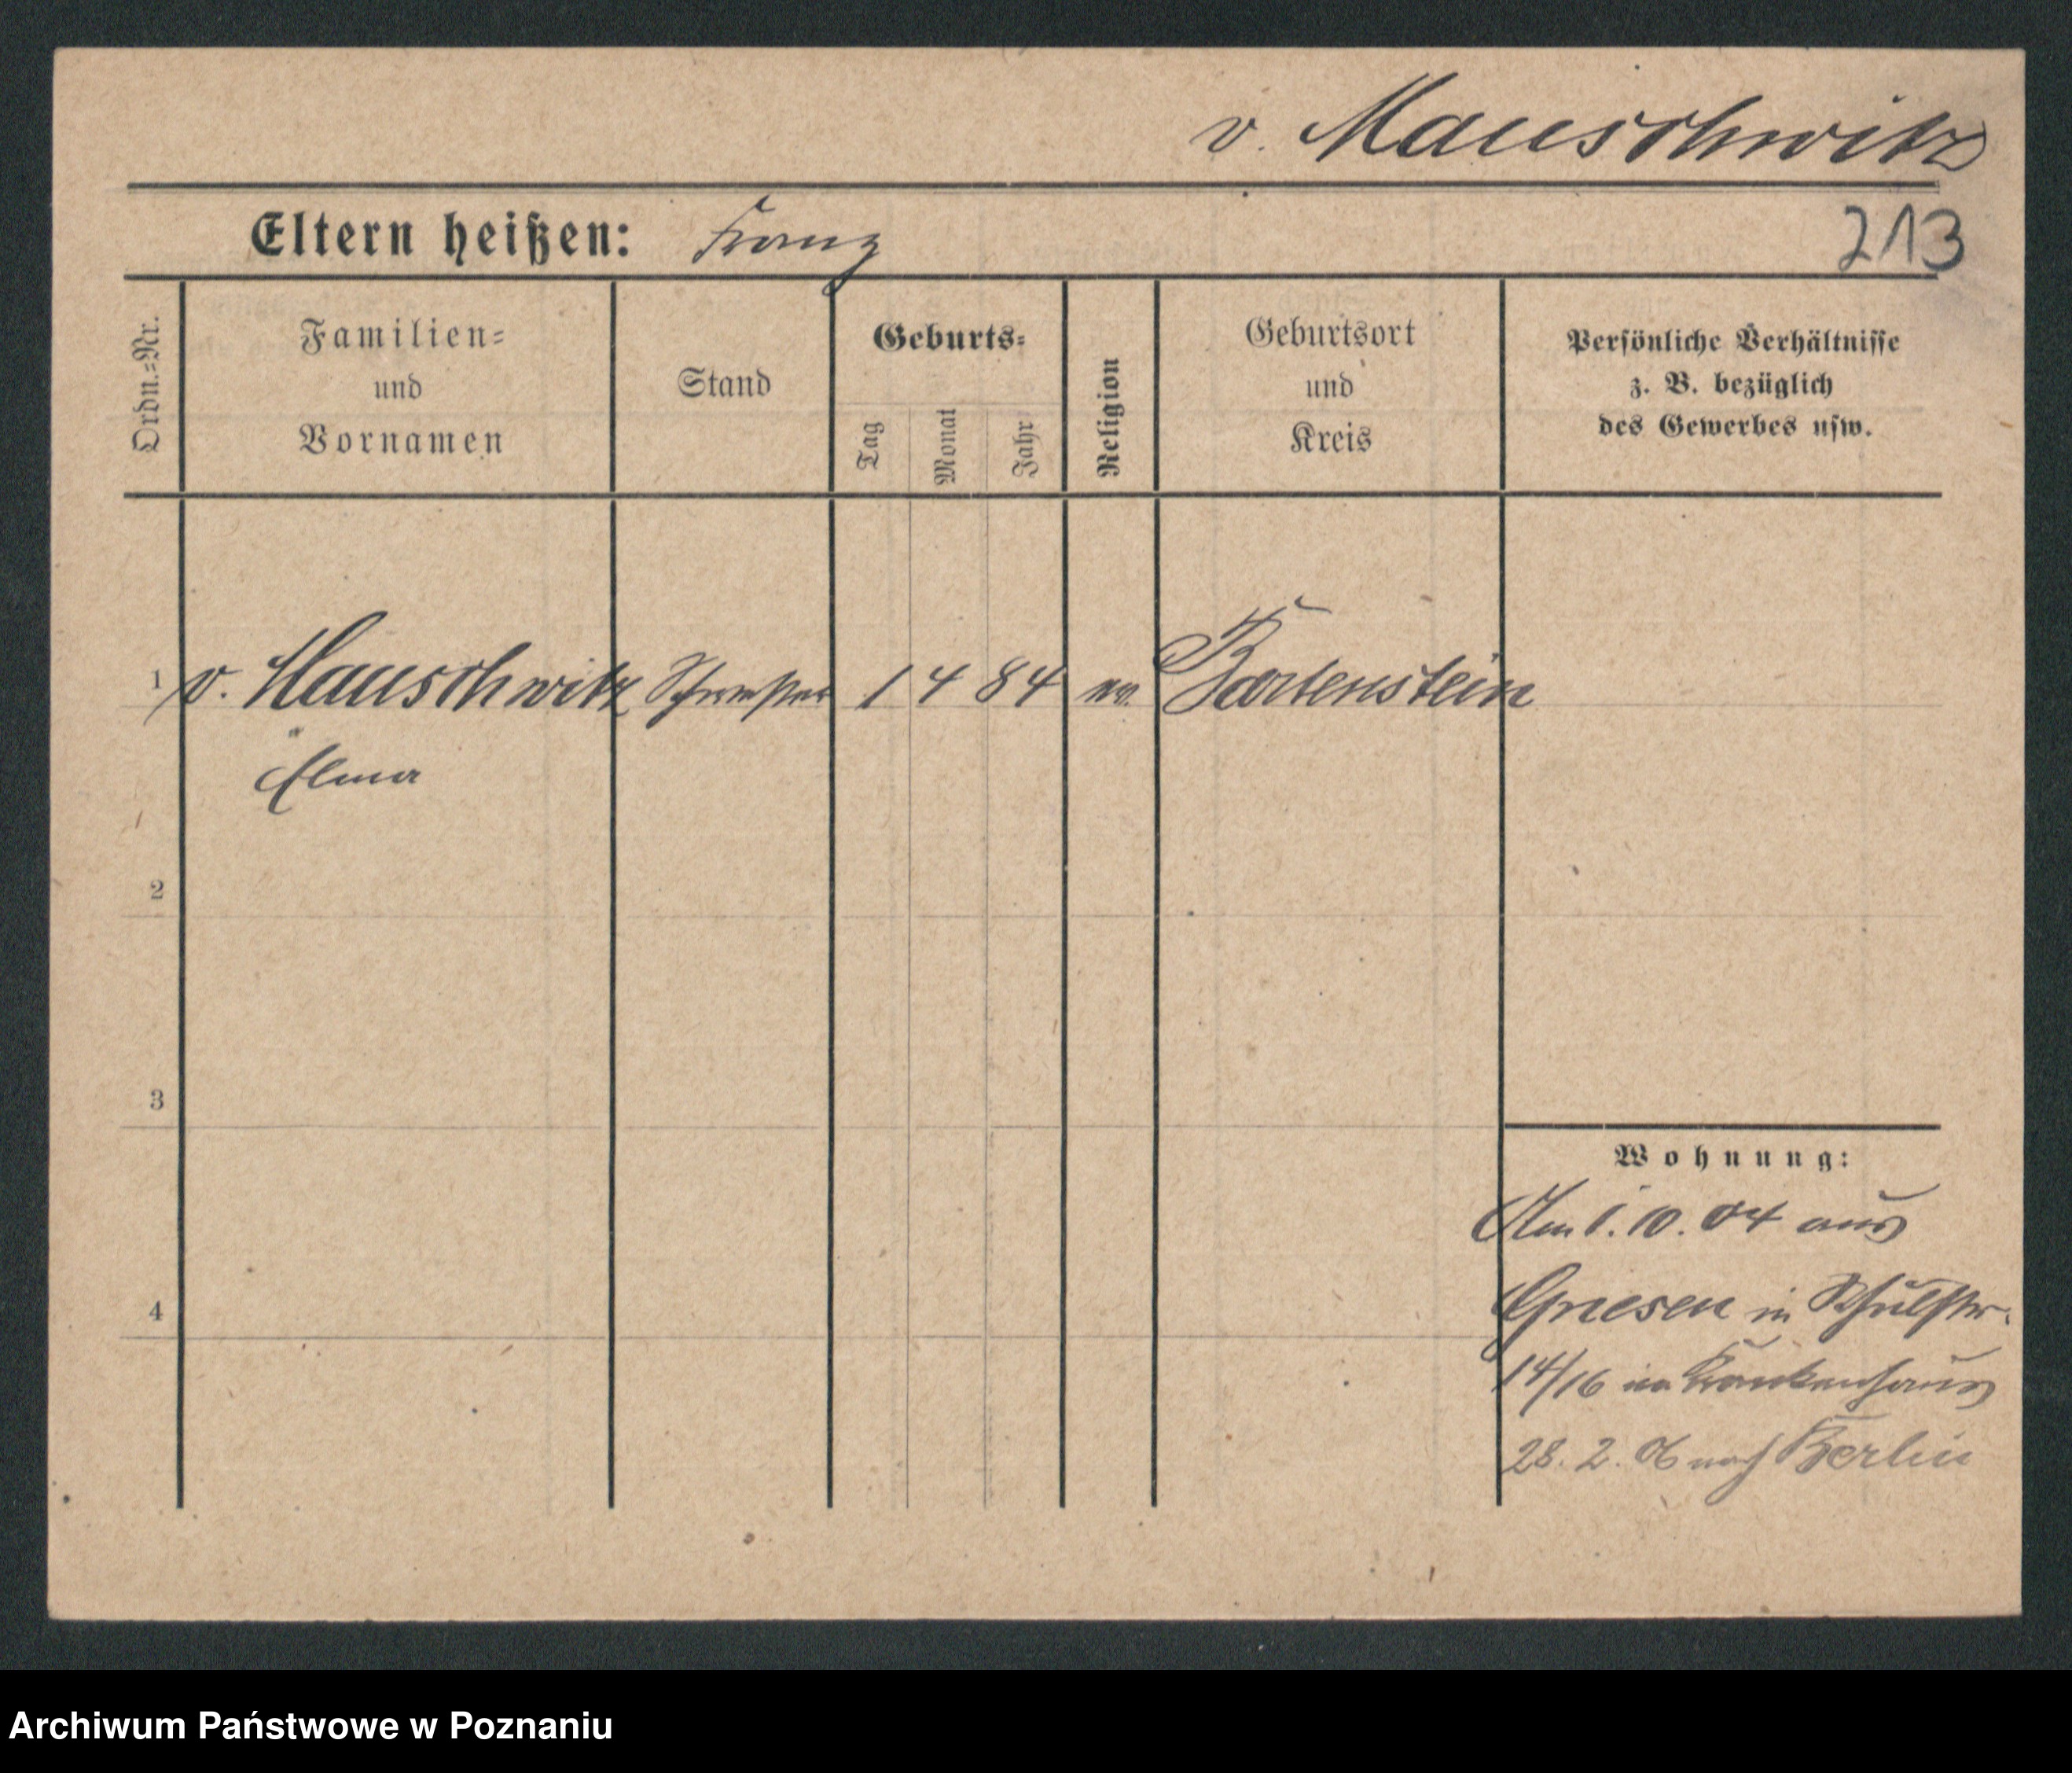 v. Mauschwitz
Eltern heißen: Franz
213
Ordn.-Nr.
Familien-
und
Vornamen
Stand
Geburts-
Tag
Monat
Jahr
Religion
Geburtsort
und
Kreis
Persönliche Verhältnisse
z. B. bezüglich
des Gewerbes usw.
1 v. Mauschwitz Schwester 1 4 84 ev. Bartenstein
Elma
2
3
4
Wohnung:
Am 1. 10. 04 aus
Gnesen in Schulstr.
14/16 im Krankenhaus
28. 2. 06 nach Berlin
Archiwum Państwowe w Poznaniu